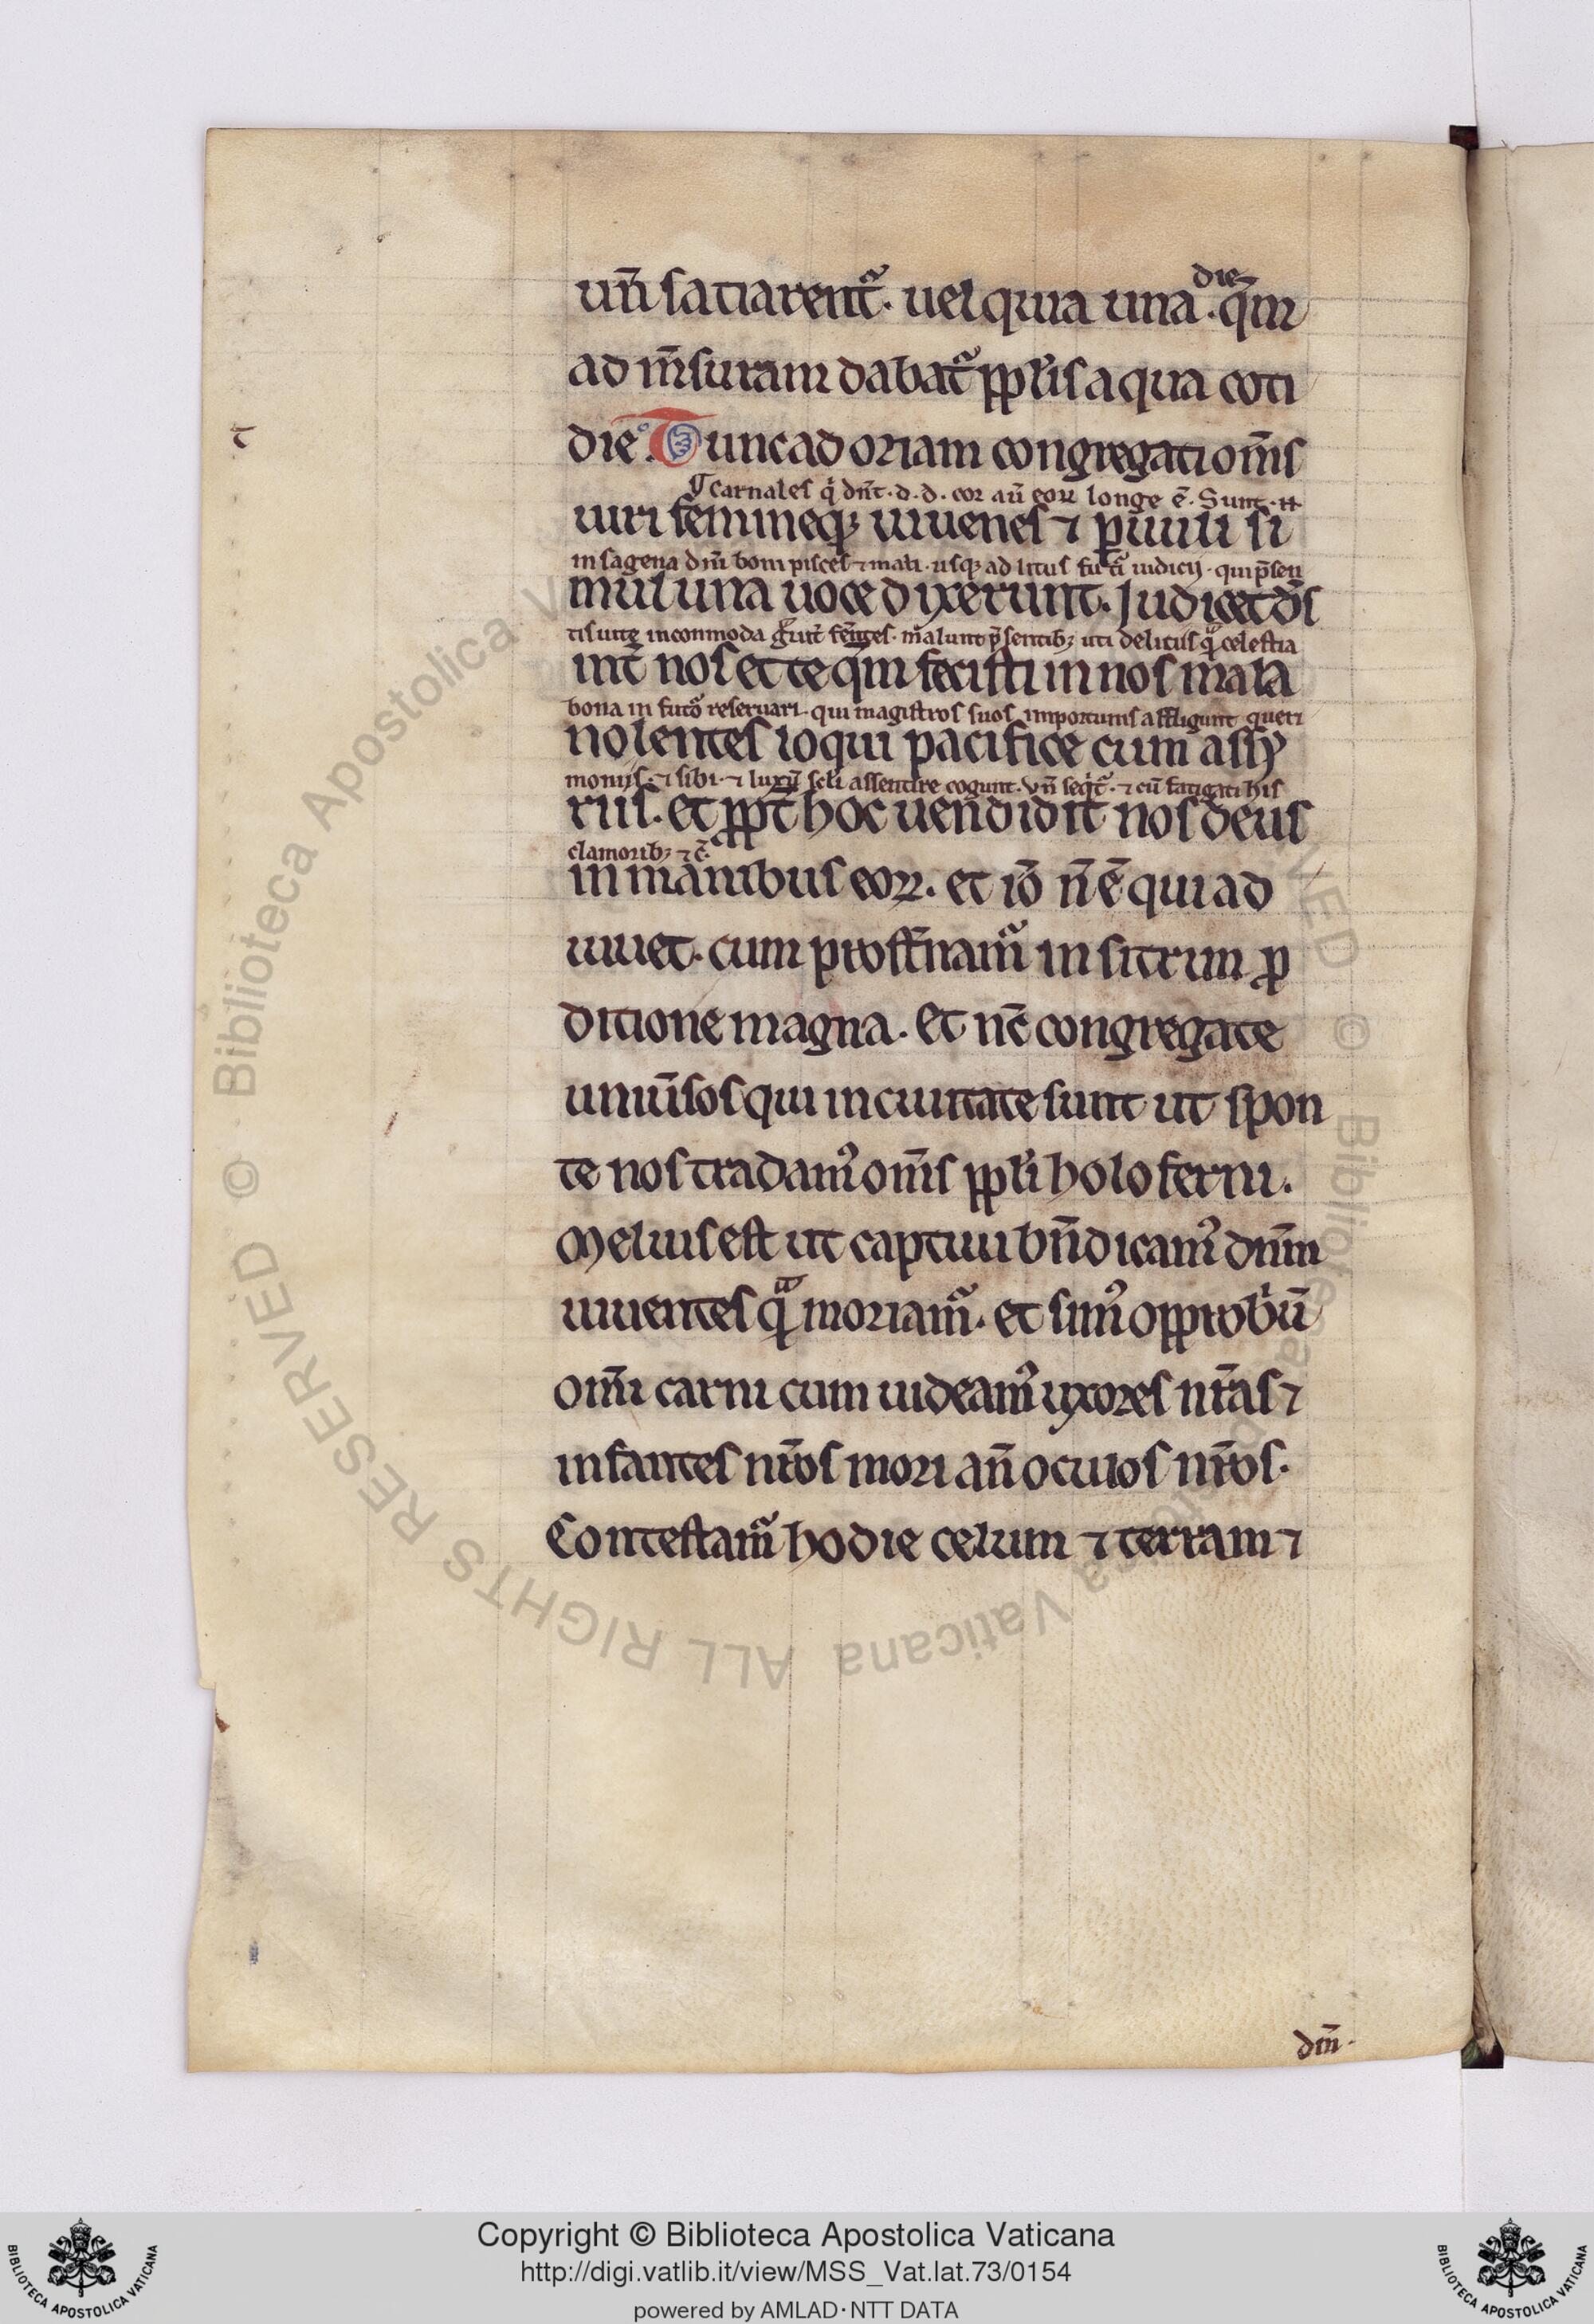 die
un̄ satiarent᷑. uel quia una .qm̄
ad m̄suram dabat᷑ pplis aqua coti
die. Tunc ad oziam congregati om̄s
carnales q̇ dn̄t. d. d. cor aū eoꝝ longe ē. Sunt. n̄
uiri femineqꝫ iuuenes ⁊ ꝑuuli si
in sagena dn̄i boni pisces ⁊ mali. usqꝫ ad litus fut᷑i iudicij. qui p̄sen
mul una uoce dixerunt. Judicet ds̄
tis uite inconmoda g̃uit̃ ferentes. malunt p̄sentibꝫ uti delitiis qͣ̃ celestia
int̃ nos et te qm̄ fecisti in nos mala
bona in futo᷑ reseruari. qui magistros suos importunis affligunt queri
nolentes loqui pacifice cum assy
moniis. ⁊ sibi. ⁊ luxui sc̄li assentire cogunt. Vn̄ seqit᷑. ⁊ cū fatigati his
riis. et ppt̃ hoc uendidit nos deus
clamoribꝫ ⁊ c̃.
in manibus eoꝝ. et iō n̄ ē qui ad
iuuet. cum prosternam᷑ in siti ⁊ in ꝑ
ditione magna. Et nc̄ congregate
uniūsos qui in ciuitate sunt ut spon
te nos tradamꝰ om̄s ppli holoferni.
Melius est ut captiui bn̄dicamꝰ dn̄m
uiuentes qͣ̃ moriam᷑. et simꝰ opprobiū
om̄i carni cum uideamꝰ uxores nr̄as ⁊
infantes nr̄os mori an̄ oculos nr̄os.
Contestam᷑ hodie celum ⁊ terram ⁊
dm̄.
© Biblioteca Apostolica Vaticana ALL RIGHTS RESERVED
Copyright © Biblioteca Apostolica Vaticana
http://digi.vatlib.it/view/MSS_Vat.lat.73/0154
powered by AMLAD·NTT DATA
BIBLIOTECA APOSTOLICA VATICANA
BIBLIOTECA APOSTOLICA VATICANA